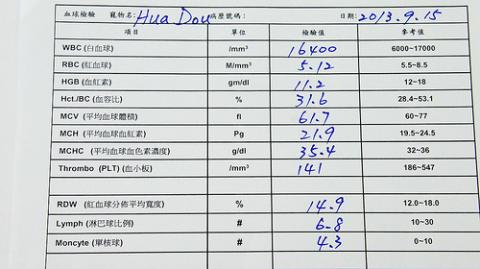 血球檢驗 寵物名: Hua Dou 病歷號碼: 日期: 2013.9.15
項目 單位 檢驗值 參考值
WBC (白血球) /mm³ 16400 6000~17000
RBC (紅血球) M/mm³ 5.12 5.5~8.5
HGB (血紅素) gm/dl 11.2 12~18
Hct./BC (血容比) % 31.6 28.4~53.1
MCV (平均血球體積) fl 61.7 60~77
MCH (平均血球血紅素) Pg 21.9 19.5~24.5
MCHC (平均血球血色素濃度) g/dl 35.4 32~36
Thrombo (PLT) (血小板) /mm³ 141 186~547
RDW (紅血球分佈平均寬度) % 14.9 12.0~18.0
Lymph (淋巴球比例) # 6.8 10~30
Moncyte (單核球) # 4.3 0~10